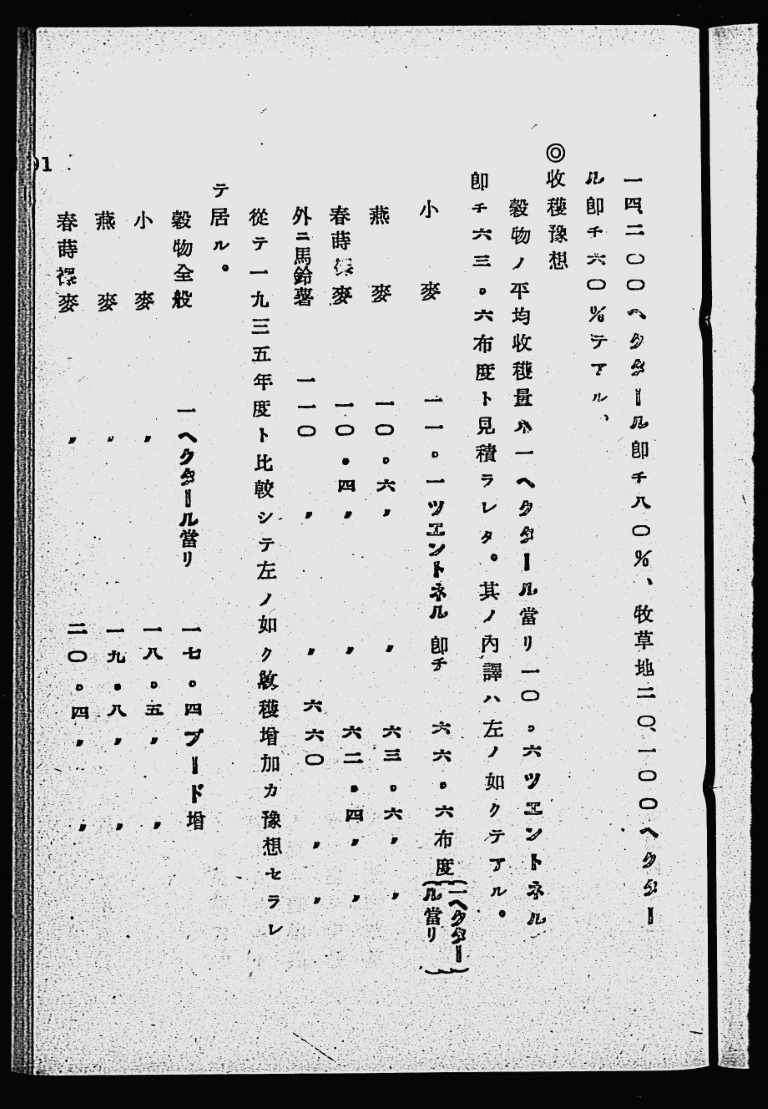 一四、二〇〇ヘクタール卽チ八〇％、牧草地二〇、一〇〇ヘクター
ル卽チ六〇％テアル、
◎收穫豫想
穀物ノ平均收穫量ハ一ヘクタール當リ一〇。六ツエントネル
卽チ六三。六布度ト見積ラレタ。其ノ內譯ハ左ノ如クテアル。
小麥 一一。一ツエントネル 卽チ 六六。六布度(一ヘクタール當リ)
燕麥 一〇。六〃 〃 六三。六〃 〃
春蒔裸麥 一〇。四〃 〃 六二。四〃 〃
外ニ馬鈴薯 一一〇 〃 〃 六六〇 〃 〃
從テ一九三五年度ト比較シテ左ノ如ク收穫增加カ豫想セラレ
テ居ル。
穀物全般 一ヘクタール當リ 一七。四プード增
小麥 〃 一八。五〃 〃
燕麥 〃 一九。八〃 〃
春蒔裸麥 〃 二〇。四〃 〃